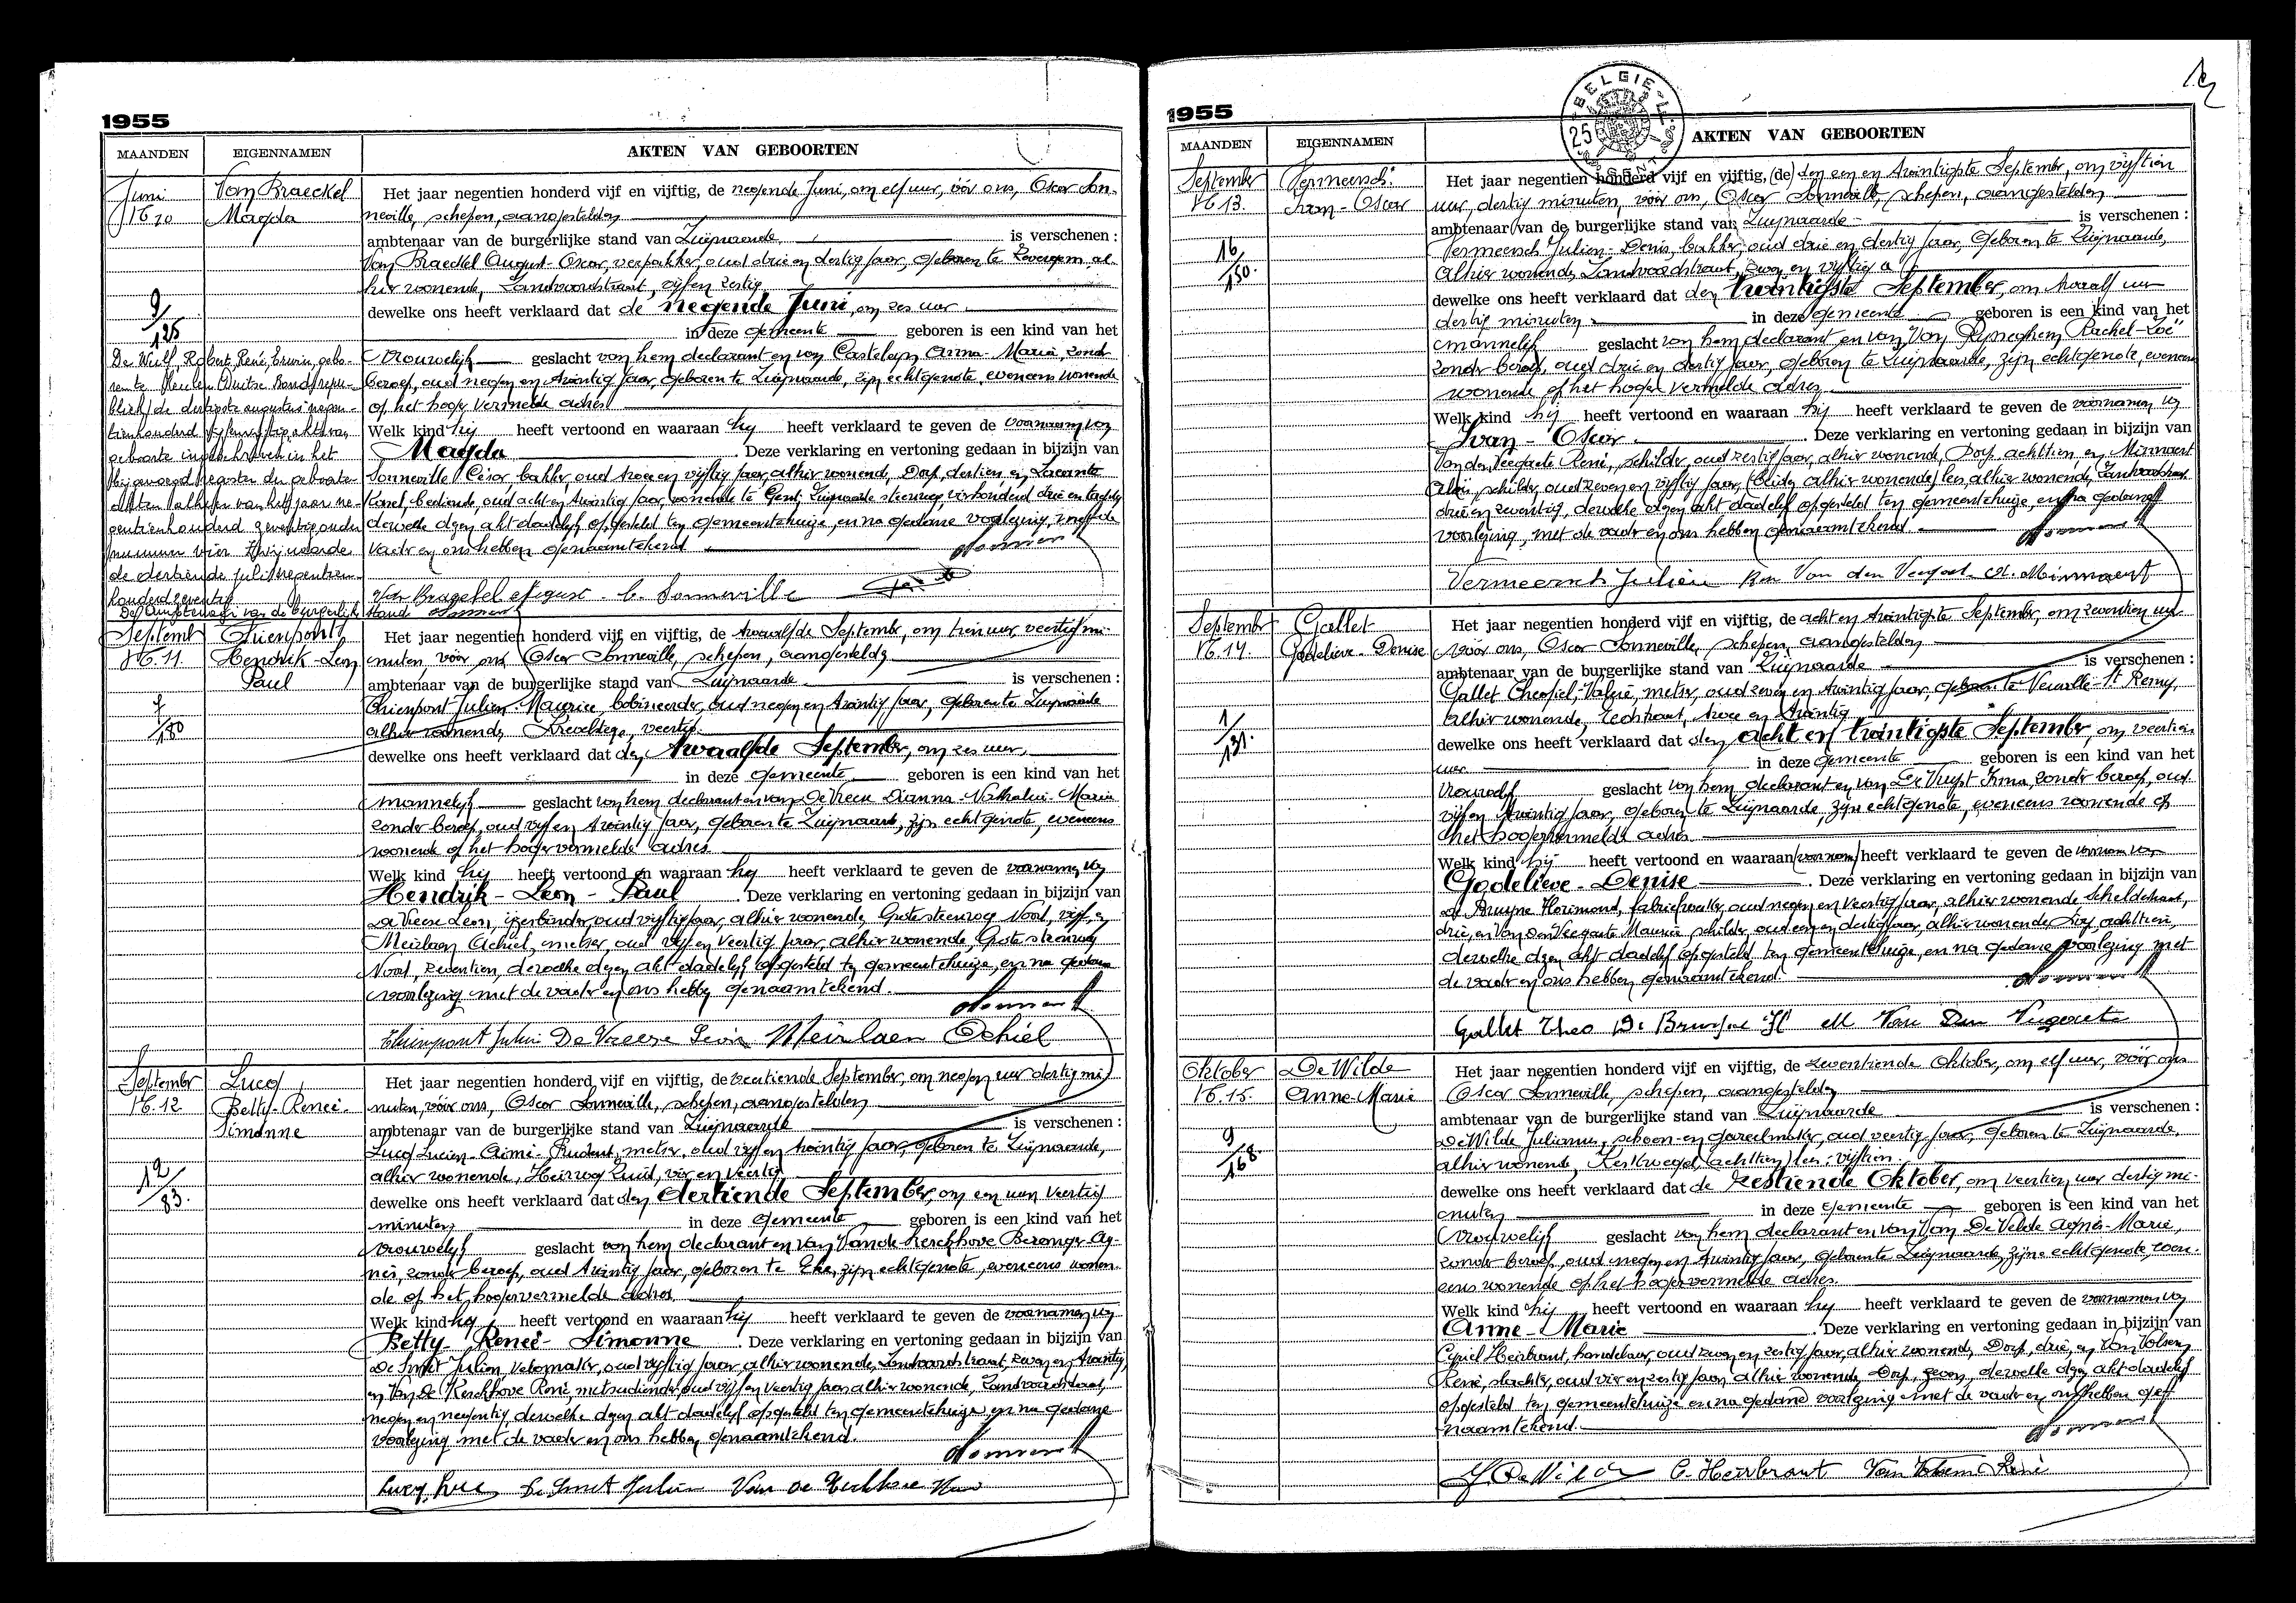 1955
MAANDEN EIGENNAMEN AKTEN VAN GEBOORTEN
Juni Van Braeckel
N° 10 Magda
9/125
Het jaar negentien honderd vijf en vijftig, de negende Juni, om elf uur, vóór ons, Oscar Son-
neville, schepen, aangestelden
ambtenaar van de burgerlijke stand van Zwijnaarde is verschenen :
Van Braeckel August-Oscar, verpakker, oud drie en dertig jaar, geboren te Zevergem, al-
hier wonende, Zandvoordestraat, vijf en zestig
dewelke ons heeft verklaard dat de negende Juni, om zes uur
in deze gemeente geboren is een kind van het
vrouwelijk geslacht van hem declarant en van Casteleyn Anna-Maria, zonder
beroep, oud negen en twintig jaar, geboren te Zwijnaarde, zijn echtgenote, eveneens wonende
op het hoger vermelde adres
Welk kind hij heeft vertoond en waaraan hij heeft verklaard te geven de voornaam van
Magda . Deze verklaring en vertoning gedaan in bijzijn van
Sonneville César, bakker, oud twee en vijftig jaar, alhier wonende, Dorp, dertien, en
Karel, bediende, oud acht en twintig jaar, wonende te Gent, Zwijnaarde steenweg, vierhonderd drie en tachtig
dewelke dezen akt dadelijk opgesteld ten gemeentehuize, en na gedane voorlezing, met de
vader en ons hebben genaamtekend.
De Wulf, Robert, René, Erwin, gebo-
ren te Duitse Bondsrepu-
bliek) de dertigste augustus negen-
tienhonderd vijfenvijftig, akte van
geboorte ingeschreven in het
bijgevoegd register der geboorte-
akten alhier van het jaar ne-
gentienhonderd zeventig onder
nummer vier. Zwijnaarde
de dertiende juli negentien-
honderd zeventig
De Ambtenaar van de Burgerlijke Stand
Van Braeckel August C. Sonneville
Septembr Thienpont
N° 11. Hendrik-Leon
Paul
7/180
Het jaar negentien honderd vijf en vijftig, de twaalfde September, om tien uur, veertig mi-
nuten, vóór ons, Oscar Sonneville, schepen, aangestelden
ambtenaar van de burgerlijke stand van Zwijnaarde is verschenen :
Thienpont Julien Maurice, bobineerder, oud negen en twintig jaar, geboren te Zwijnaarde
alhier wonende, veertig.
dewelke ons heeft verklaard dat den twaalfde September, om zes uur,
in deze gemeente geboren is een kind van het
mannelijk geslacht van hem declarant en van De Vreese Dianna-Nathalie-Maria
zonder beroep, oud vijf en twintig jaar, geboren te Zwijnaarde, zijn echtgenote, eveneens
wonende op het hoger vermelde adres
Welk kind hij heeft vertoond en waaraan hij heeft verklaard te geven de voornamen van
Hendrik - Leon - Paul . Deze verklaring en vertoning gedaan in bijzijn van
De Vreese Leon, ijzerbinder, oud vijftig jaar, alhier wonende, Grote steenweg Noord, vijf, en
Meirlaen Achiel, metser, oud vijf en veertig jaar, alhier wonende, Grote steenweg
Noord, zeventien, dewelke dezen akt dadelijk opgesteld ten gemeentehuize, en na gedane
voorlezing met de vader en ons hebben genaamtekend.
Thienpont Julien De Vreese Leon Meirlaen Achiel
Septembr Lucq
N° 12 Betty-Reneé-
Simonne
12/83.
Het jaar negentien honderd vijf en vijftig, de veertiende September, om negen uur dertig mi
nuten, vóór ons, Oscar Sonneville, schepen, aangestelden
ambtenaar van de burgerlijke stand van Zwijnaarde is verschenen :
Lucq Lucien-Aimé-Prudent, metser, oud vijf en twintig jaar, geboren te Zwijnaarde,
alhier wonende, Heirweg Zuid, vier en veertig
dewelke ons heeft verklaard dat den dertiende September, om een uur veertig
minuten in deze gemeente geboren is een kind van het
vrouwelijk geslacht van hem declarant en van Van de Kerckhove Berangere-Ag-
nès, zonder beroep, oud twintig jaar, geboren te Eke, zijn echtgenote, eveneens wonen-
de op het hogervermelde adres
Welk kind hij heeft vertoond en waaraan hij heeft verklaard te geven de voornamen van
Betty - Reneé - Simonne . Deze verklaring en vertoning gedaan in bijzijn van
De Smet Julien, velomaker, oud vijftig jaar, alhier wonende, Zandvoordestraat, zeven en twintig,
en Van De Kerckhove René, metserdiender, oud vijf en veertig jaar alhier wonende, Zandvoordestraat,
negen en negentig, dewelke dezen akt dadelijk opgesteld ten gemeentehuize en na gedane
voorlezing met de vader en ons hebben genaamtekend.
Lucq Luc De Smet Julien Van de Kerckhove René
1955
BELGIE
25
MAANDEN EIGENNAMEN AKTEN VAN GEBOORTEN
September Vermeersch
N° 13. Ivan-Oscar
16/150.
Het jaar negentien honderd vijf en vijftig, (de) den een en twintigste September, om vijftien
uur, dertig minuten, vóór ons, Oscar Sonneville, schepen, aangestelden
ambtenaar van de burgerlijke stand van Zwijnaarde is verschenen :
Vermeersch Julien-Denis, bakker, oud drie en dertig jaar, geboren te Zwijnaarde,
alhier wonende, Zandvoordestraat, zeven en vijftig a
dewelke ons heeft verklaard dat den twintigste September, om twaalf uur
dertig minuten in deze gemeente geboren is een kind van het
mannelijk geslacht van hem declarant en van Van Rijneghem Rachel-Zoë
zonder beroep, oud drie en dertig jaar, geboren te Zwijnaarde, zijn echtgenote, eveneens
wonende op het hoger vermelde adres
Welk kind hij heeft vertoond en waaraan hij heeft verklaard te geven de voornamen van
Ivan - Oscar . Deze verklaring en vertoning gedaan in bijzijn van
Van den Veegaete René, schilder, oud zestig jaar, alhier wonende, Dorp achttien, en Minnaert
Aloïs, schilder, oud zeven en vijftig jaar, (beiden alhier wonende) ten, alhier wonende, Zandvoordestraat,
drie en zeventig, dewelke dezen akt dadelijk opgesteld ten gemeentehuize, en na gedane
voorlezing, met de vader en ons hebben genaamtekend.
Vermeersch Julien Ren Van den Veegaet A. Minnaert
Septembr Gallet
N° 14. Godelieve-Denise
1/131.
Het jaar negentien honderd vijf en vijftig, de acht en twintigste September, om zeventien uur
vóór ons, Oscar Sonneville, schepen, aangestelden
ambtenaar van de burgerlijke stand van Zwijnaarde is verschenen :
Gallet Theofiel-Valerie, metser, oud zeven en twintig jaar, geboren te Neuville St Remy,
alhier wonende, twee en twintig
dewelke ons heeft verklaard dat den acht en twintigste September, om veertien
uur in deze gemeente geboren is een kind van het
vrouwelijk geslacht van hem declarant en van De Vuyst Irma, zonder beroep, oud
vijf en twintig jaar, geboren te Zwijnaarde, zijn echtgenote, eveneens wonende op
het hogervermelde adres
Welk kind hij heeft vertoond en waaraan (voornaam) heeft verklaard te geven de voornamen van
Godelieve - Denise . Deze verklaring en vertoning gedaan in bijzijn van
De Bruyne Florimond, fabriekwerker, oud negen en veertig jaar, alhier wonende Scheldestraat,
drie, en Van Den Veegaete Maurice, schilder, oud een en dertig jaar, alhier wonende Dorp, achttien,
dewelke dezen akt dadelijk opgesteld ten gemeentehuize, en na gedane voorlezing met
de vader en ons hebben genaamtekend.
Gallet Theo De Bruyne Fl M Van Den Veegaete
Oktober De Wilde
N° 15. Anne-Marie
9/168.
Het jaar negentien honderd vijf en vijftig, de zeventiende Oktober, om elf uur, vóór ons
Oscar Sonneville, schepen, aangestelden
ambtenaar van de burgerlijke stand van Zwijnaarde is verschenen :
De Wilde Julianus, schoen- en gareelmaker, oud veertig jaar, geboren te Zwijnaarde,
alhier wonende, Kerkwegel, (achttien) ten : vijftien.
dewelke ons heeft verklaard dat de zestiende Oktober, om veertien uur dertig mi-
nuten in deze gemeente geboren is een kind van het
vrouwelijk geslacht van hem declarant en van Van De Velde Agnès-Marie,
zonder beroep, oud negen en twintig jaar, geboren te Zwijnaarde, zijne echtgenote, even-
eens wonende op het hogervermelde adres.
Welk kind hij heeft vertoond en waaraan hij heeft verklaard te geven de voornamen van
Anne - Marie . Deze verklaring en vertoning gedaan in bijzijn van
Cyriel Heirbrant, handelaar, oud zeven en zestig jaar, alhier wonende, Dorp, drie, en Van Volsem
René, slachter, oud vier en zestig jaar, alhier wonende, Dorp, zeven, dewelke dezen akt dadelijk
opgesteld ten gemeentehuize en na gedane voorlezing met de vader en ons hebben ge-
naamtekend.
J. De Wilde C. Heirbrant Van Volsem René